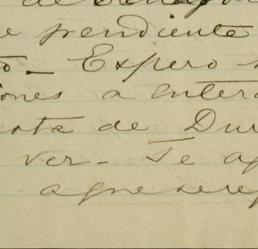 e pendiente
to_ Espero
iones a entera
ota de Dur
ver- Te ag